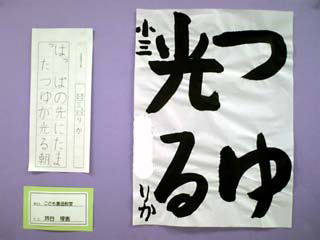 つゆ
光る
小三 りか
りか
はっぱの先にたま
った つゆが光る朝
こども書道教室